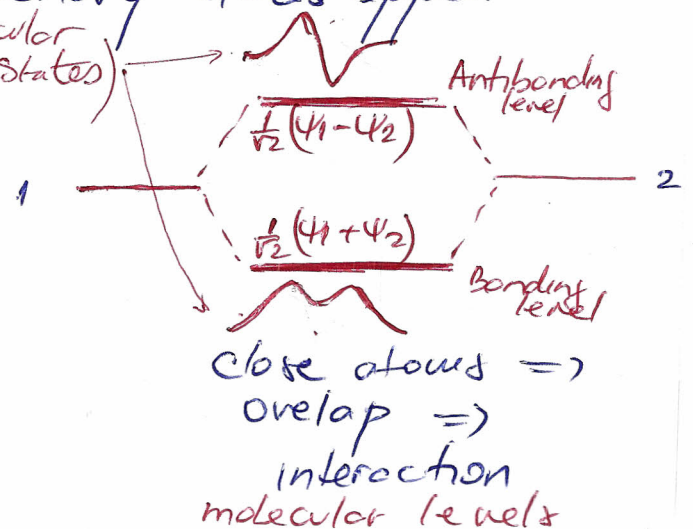 cular
States)
Antibonding
level
1/√2 (ψ1 - ψ2)
1
2
1/√2 (ψ1 + ψ2)
Bonding
level
close atoms =>
ovelap =>
interaction
molecular levels